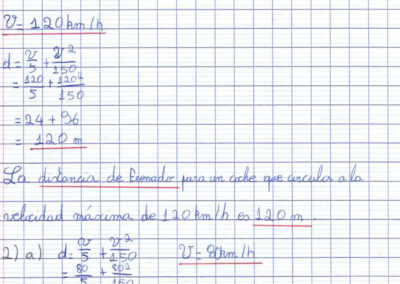 V = 120 km/h
d = v/5 + v²/150
= 120/5 + 120²/150
= 24 + 96
= 120 m
La distancia de frenado para un coche que circula a la
velocidad máxima de 120 km/h es 120 m.
2) a) d = v/5 + v²/150 V = 80 km/h
= 80/5 + 80²/150